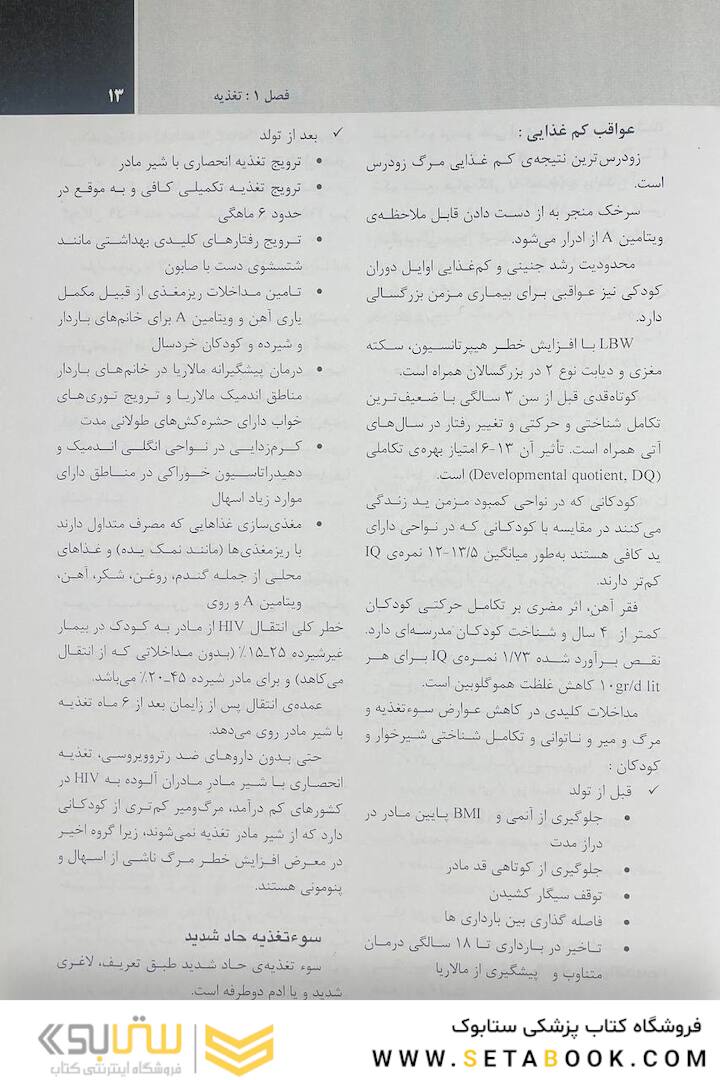 فصل ۱ : تغذیه
۱۳
عواقب کم غذایی :
زودرس‌ترین نتیجه‌ی کم غذایی مرگ زودرس
است.
سرخک منجر به از دست دادن قابل ملاحظه‌ی
ویتامین A از ادرار می‌شود.
محدودیت رشد جنینی و کم‌غذایی اوایل دوران
کودکی نیز عواقبی برای بیماری مزمن بزرگسالی
دارد.
LBW با افزایش خطر هیپرتانسیون، سکته
مغزی و دیابت نوع ۲ در بزرگسالان همراه است.
کوتاه‌قدی قبل از سن ۳ سالگی با ضعیف‌ترین
تکامل شناختی و حرکتی و تغییر رفتار در سال‌های
آتی همراه است. تأثیر آن ۱۳-۶ امتیاز بهره‌ی تکاملی
(Developmental quotient, DQ) است.
کودکانی که در نواحی کمبود مزمن ید زندگی
می‌کنند در مقایسه با کودکانی که در نواحی دارای
ید کافی هستند به‌طور میانگین ۱۳/۵-۱۲ نمره‌ی IQ
کم‌تر دارند.
فقر آهن، اثر مضری بر تکامل حرکتی کودکان
کمتر از ۴ سال و شناخت کودکان مدرسه‌ای دارد.
نقص برآورد شده ۱/۷۳ نمره‌ی IQ برای هر
۱۰gr/d lit کاهش غلظت هموگلوبین است.
مداخلات کلیدی در کاهش عوارض سوءتغذیه و
مرگ و میر و ناتوانی و تکامل شناختی شیرخوار و
کودکان :
✓ قبل از تولد
• جلوگیری از آنمی و BMI پایین مادر در
دراز مدت
• جلوگیری از کوتاهی قد مادر
• توقف سیگار کشیدن
• فاصله گذاری بین بارداری ها
• تاخیر در بارداری تا ۱۸ سالگی درمان
متناوب و پیشگیری از مالاریا
✓ بعد از تولد
• ترویج تغذیه انحصاری با شیر مادر
• ترویج تغذیه تکمیلی کافی و به موقع در
حدود ۶ ماهگی
• ترویج رفتارهای کلیدی بهداشتی مانند
شتسشوی دست با صابون
• تامین مداخلات ریزمغذی از قبیل مکمل
یاری آهن و ویتامین A برای خانم‌های باردار
و شیرده و کودکان خردسال
• درمان پیشگیرانه مالاریا در خانم‌های باردار
مناطق اندمیک مالاریا و ترویج توری‌های
خواب دارای حشره‌کش‌های طولانی مدت
• کرم‌زدایی در نواحی انگلی اندمیک و
دهیدراتاسیون خوراکی در مناطق دارای
موارد زیاد اسهال
• مغذی‌سازی غذاهایی که مصرف متداول دارند
با ریزمغذی‌ها (مانند نمک یده) و غذاهای
محلی از جمله گندم، روغن، شکر، آهن،
ویتامین A و روی
خطر کلی انتقال HIV از مادر به کودک در بیمار
غیرشیرده ۲۵-۱۵٪ (بدون مداخلاتی که از انتقال
می‌کاهد) و برای مادر شیرده ۴۵-۲۰٪ می‌باشد.
عمده‌ی انتقال پس از زایمان بعد از ۶ ماه تغذیه
با شیر مادر روی می‌دهد.
حتی بدون داروهای ضد رتروویروسی، تغذیه
انحصاری با شیر مادرِ مادران آلوده به HIV در
کشورهای کم درآمد، مرگ‌ومیر کم‌تری از کودکانی
دارد که از شیر مادر تغذیه نمی‌شوند، زیرا گروه اخیر
در معرض افزایش خطر مرگ ناشی از اسهال و
پنومونی هستند.
سوءتغذیه حاد شدید
سوء تغذیه‌ی حاد شدید طبق تعریف، لاغری
شدید و یا ادم دوطرفه است.
فروشگاه کتاب پزشکی ستابوک
WWW.SETABOOK.COM
ستابوک
فروشگاه اینترنتی کتاب